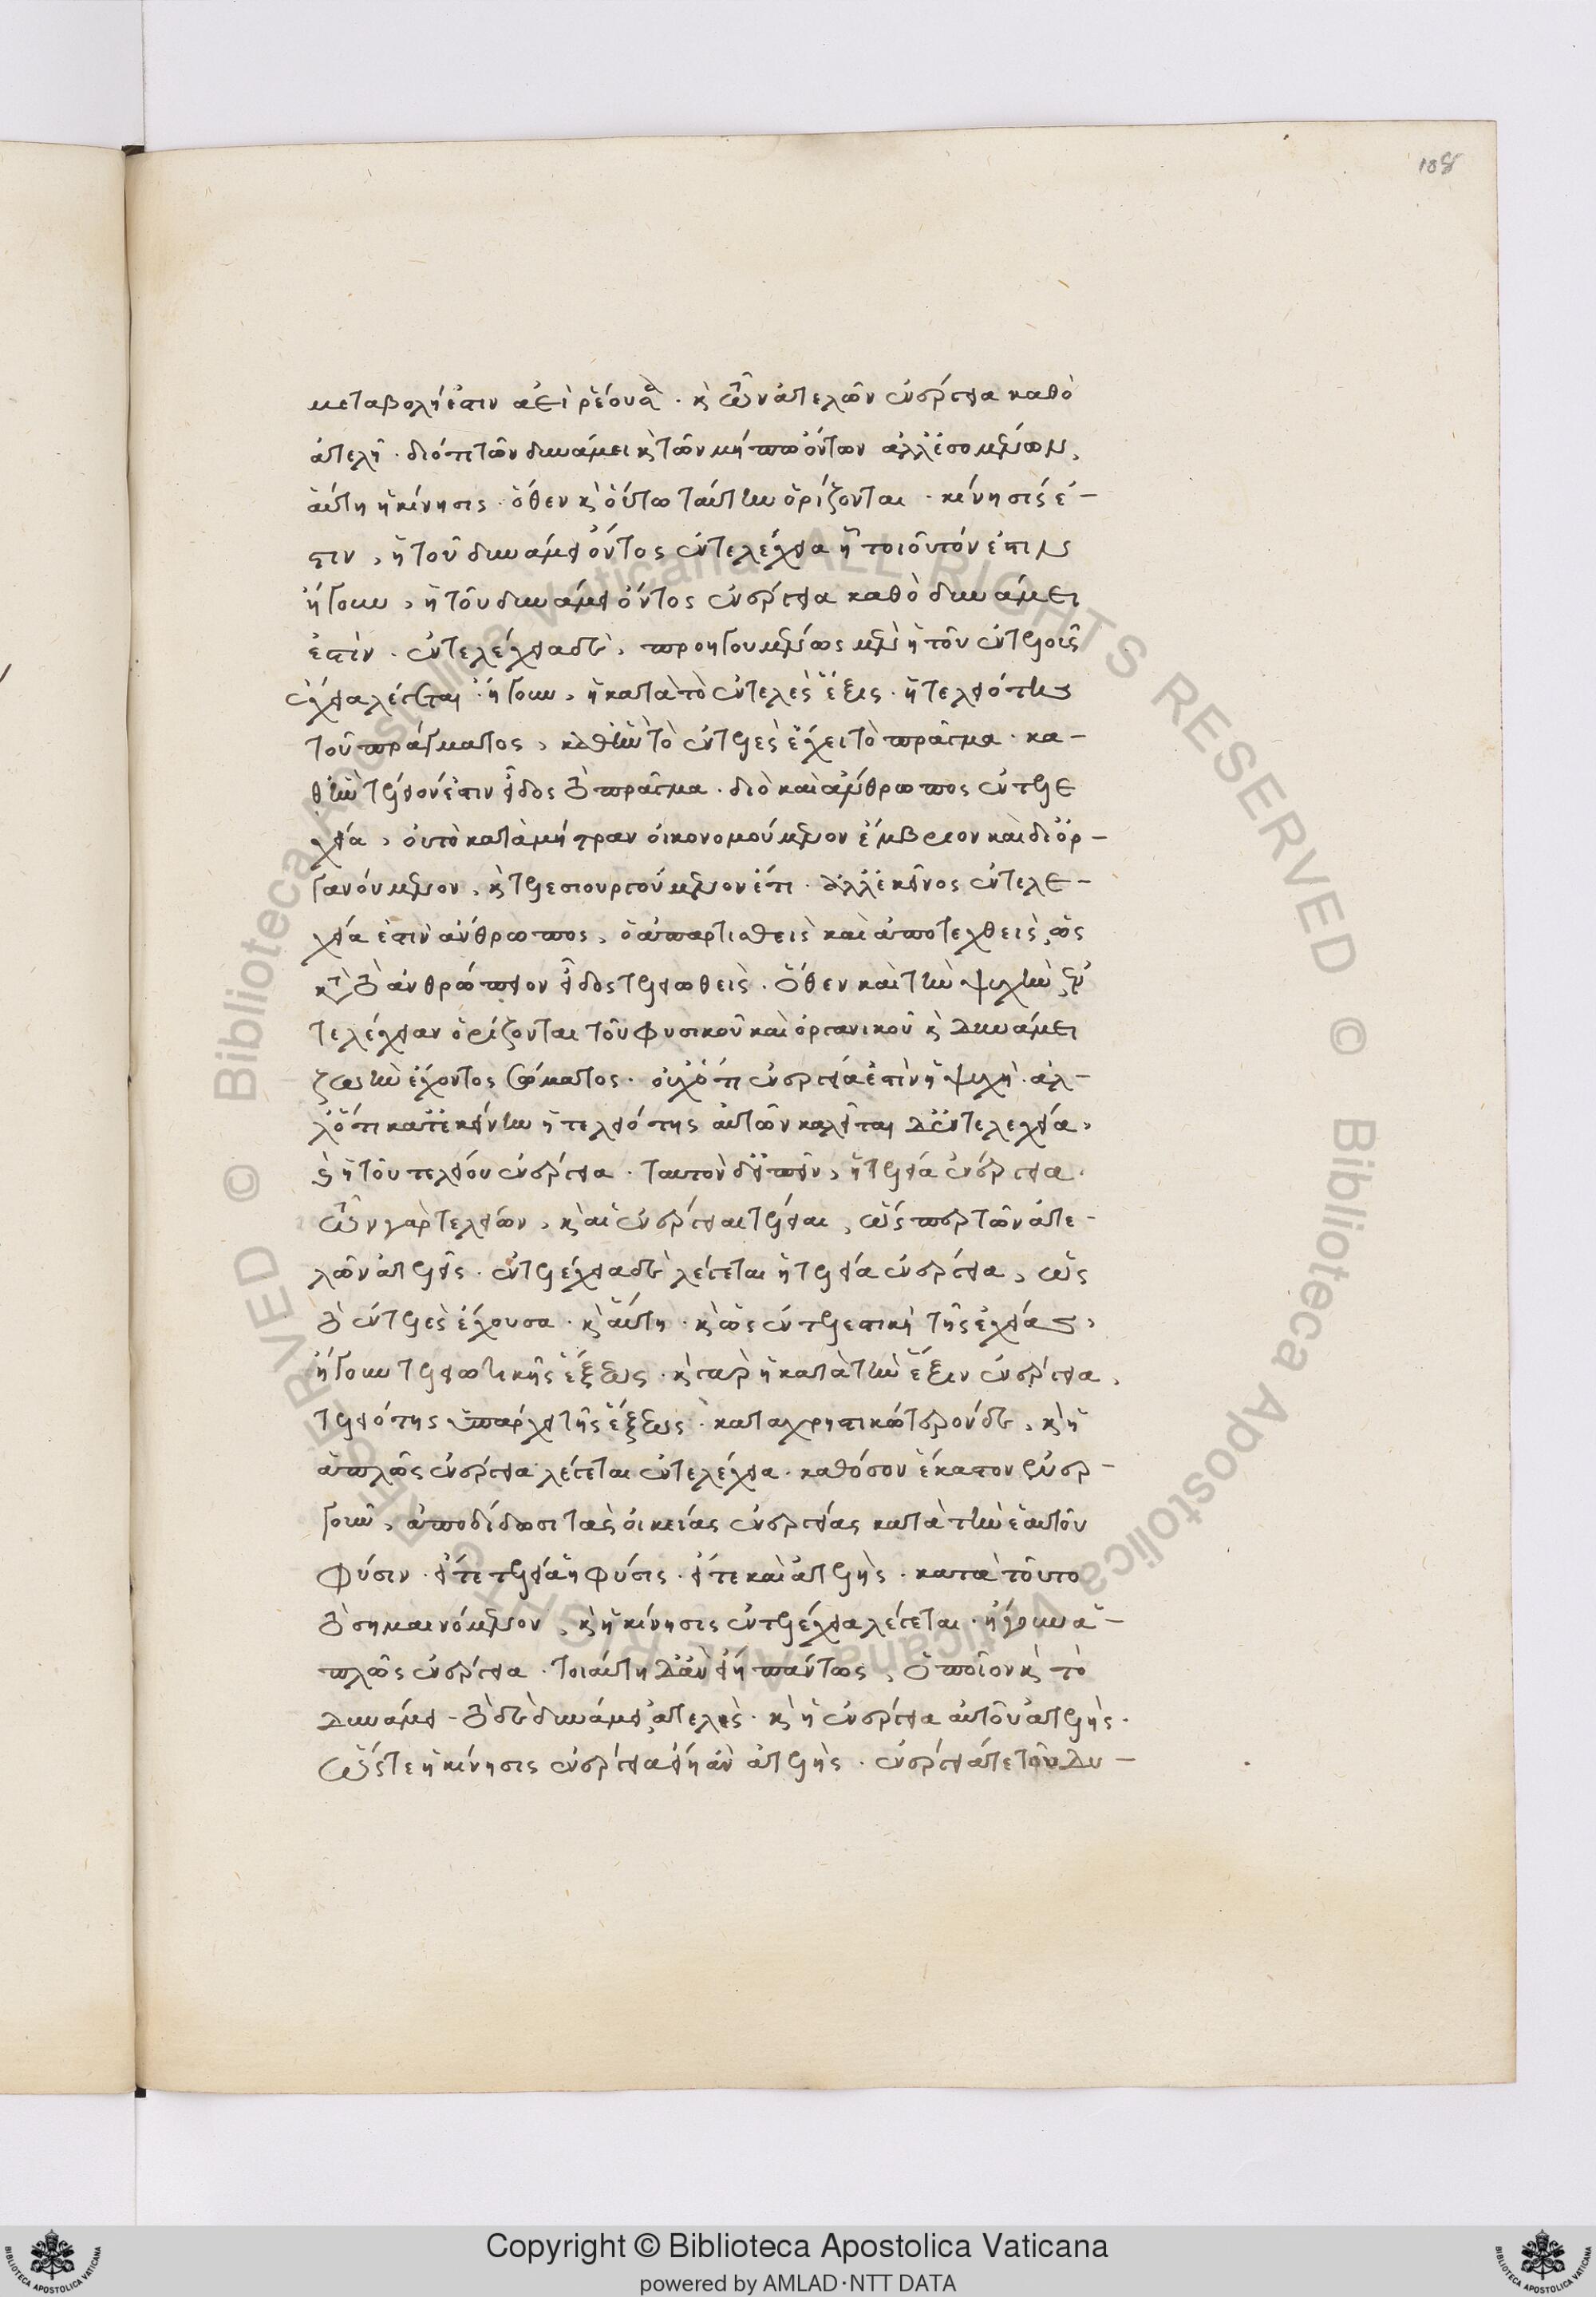 108
μεταβολή ἐστιν ἀεὶ ῥέουσα. καὶ τῶν ἀτελῶν ἐνέργεια καθὸ
ἀτελῆ. διότι τῶν δυνάμει καὶ τῶν μήπω ὄντων ἀλλ' ἐσομένων,
αὕτη ἡ κίνησις. ὅθεν καὶ οὕτω ταύτην ὁρίζονται. κίνησίς ἐ-
στιν, ἡ τοῦ δυνάμει ὄντος ἐντελέχεια ᾗ τοιοῦτόν ἐστιν
ἤγουν, ἡ τοῦ δυνάμει ὄντος ἐνέργεια καθὸ δυνάμει
ἐστίν. ἐντελέχεια δὲ, προηγουμένως μὲν ἡ τῶν ἐντελοῖς
ἔχεια λέγεται. ἤγουν, ἡ κατὰ τὸ ἐντελὲς ἕξις. ἡ τελειότης
τοῦ πράγματος, καθ' ἣν τὸ ἐντελὲς ἔχει τὸ πρᾶγμα. κα-
θ' ἣν τέλειόν ἐστιν εἶδος τὸ πρᾶγμα. διὸ καὶ ἄνθρωπος ἐντελέ
χεια, οὐ τὸ κατὰ μήτραν οἰκονομούμενον ἔμβρυον καὶ διορ-
γανούμενον, καὶ τελεσιουργούμενον ἔτι. ἀλλ' ἐκεῖνος ἐντελέ-
χεια ἐστὶν ἄνθρωπος, ὁ ἀπαρτισθεὶς καὶ ἀποτεχθεὶς, ὡς
κατὰ τὸ ἀνθρώπειον εἶδος τελειωθείς. ὅθεν καὶ τὴν ψυχὴν ἐν
τελέχειαν ὁρίζονται τοῦ φυσικοῦ καὶ ὀργανικοῦ καὶ δυνάμει
ζωὴν ἔχοντος σώματος. οὐχ ὅτι ἐνέργεια ἐστὶν ἡ ψυχή. ἀλ-
λ' ὅτι κατ' ἐκείνην ἡ τελειότης αὐτῶν καλεῖται δ' ἐντελέχεια,
καὶ ἡ τοῦ τελείου ἐνέργεια. ταυτὸν δ' εἰπεῖν, ἡ τελεία ἐνέργεια.
τῶν γὰρ τελείων, καὶ αἱ ἐνέργειαι τέλειαι, ὥσπερ τῶν ἀτε-
λῶν ἀτελεῖς. ἐντελέχεια δὲ λέγεται ἡ τελεία ἐνέργεια, ὡς
τὸ ἐντελὲς ἔχουσα. καὶ αὕτη. καὶ ὡς ἐντελεστικὴ τῆς ἐχείας,
ἤγουν τελειωτικῆς ἕξεως. καὶ γὰρ ἡ κατὰ τὴν ἕξιν ἐνέργεια,
τελειότης ὑπάρχει τῆς ἕξεως. καταχρηστικώτερον δὲ, καὶ ἡ
ἁπλῶς ἐνέργεια λέγεται ἐντελέχεια. καθόσον ἕκαστον τῶν ἐνερ-
γούντων, ἀποδίδωσι τὰς οἰκείας ἐνεργείας κατὰ τὴν ἑαυτοῦ
φύσιν. εἴτε τελεία ἡ φύσις. εἴτε καὶ ἀτελής. κατὰ τοῦτο
τὸ σημαινόμενον, καὶ ἡ κίνησις ἐντελέχεια λέγεται. ἤγουν ἁ-
πλῶς ἐνέργεια. τοιαύτη δ' ἂν εἴη πάντως, ὁποῖον καὶ τὸ
δυνάμει. τὸ δὲ δυνάμει, ἀτελές. καὶ ἡ ἐνέργεια αὐτοῦ ἀτελής.
ὥστε ἡ κίνησις ἐνέργεια εἴη ἂν ἀτελής. ἐνέργειά τε τοῦ δυ-
Copyright © Biblioteca Apostolica Vaticana
powered by AMLAD·NTT DATA